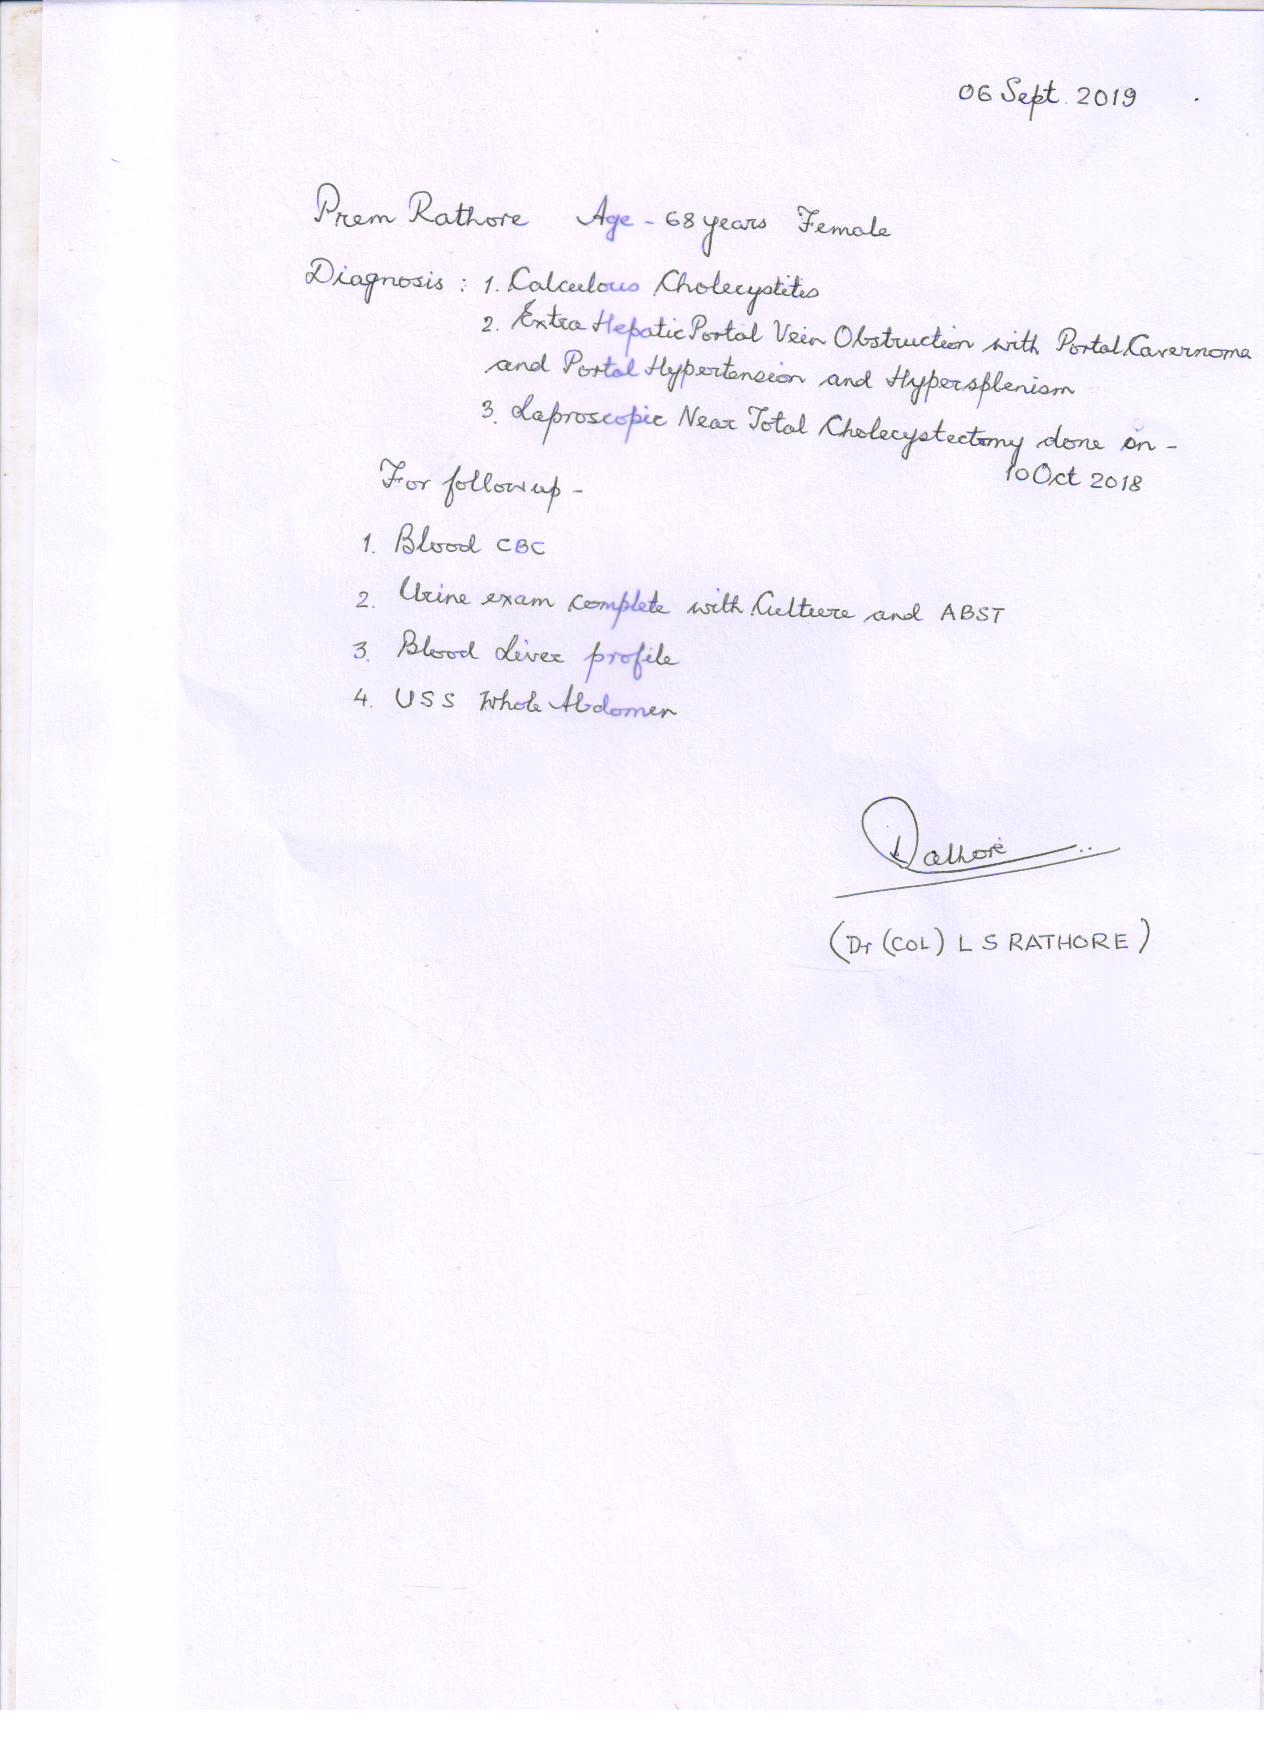 06 Sept. 2019
Prem Rathore Age - 68 years Female
Diagnosis : 1. Calculous Cholecystites
2. Extra Hepatic Portal Vein Obstruction with Portal Cavernoma
and Portal Hypertension and Hypersplenism
3. Laproscopic Near Total Cholecystectomy done on -
10 Oct 2018
For follow up -
1. Blood CBC
2. Urine exam complete with Culture and ABST
3. Blood Liver profile
4. USS Whole Abdomen
Rathore
(Dr (COL) L S RATHORE)